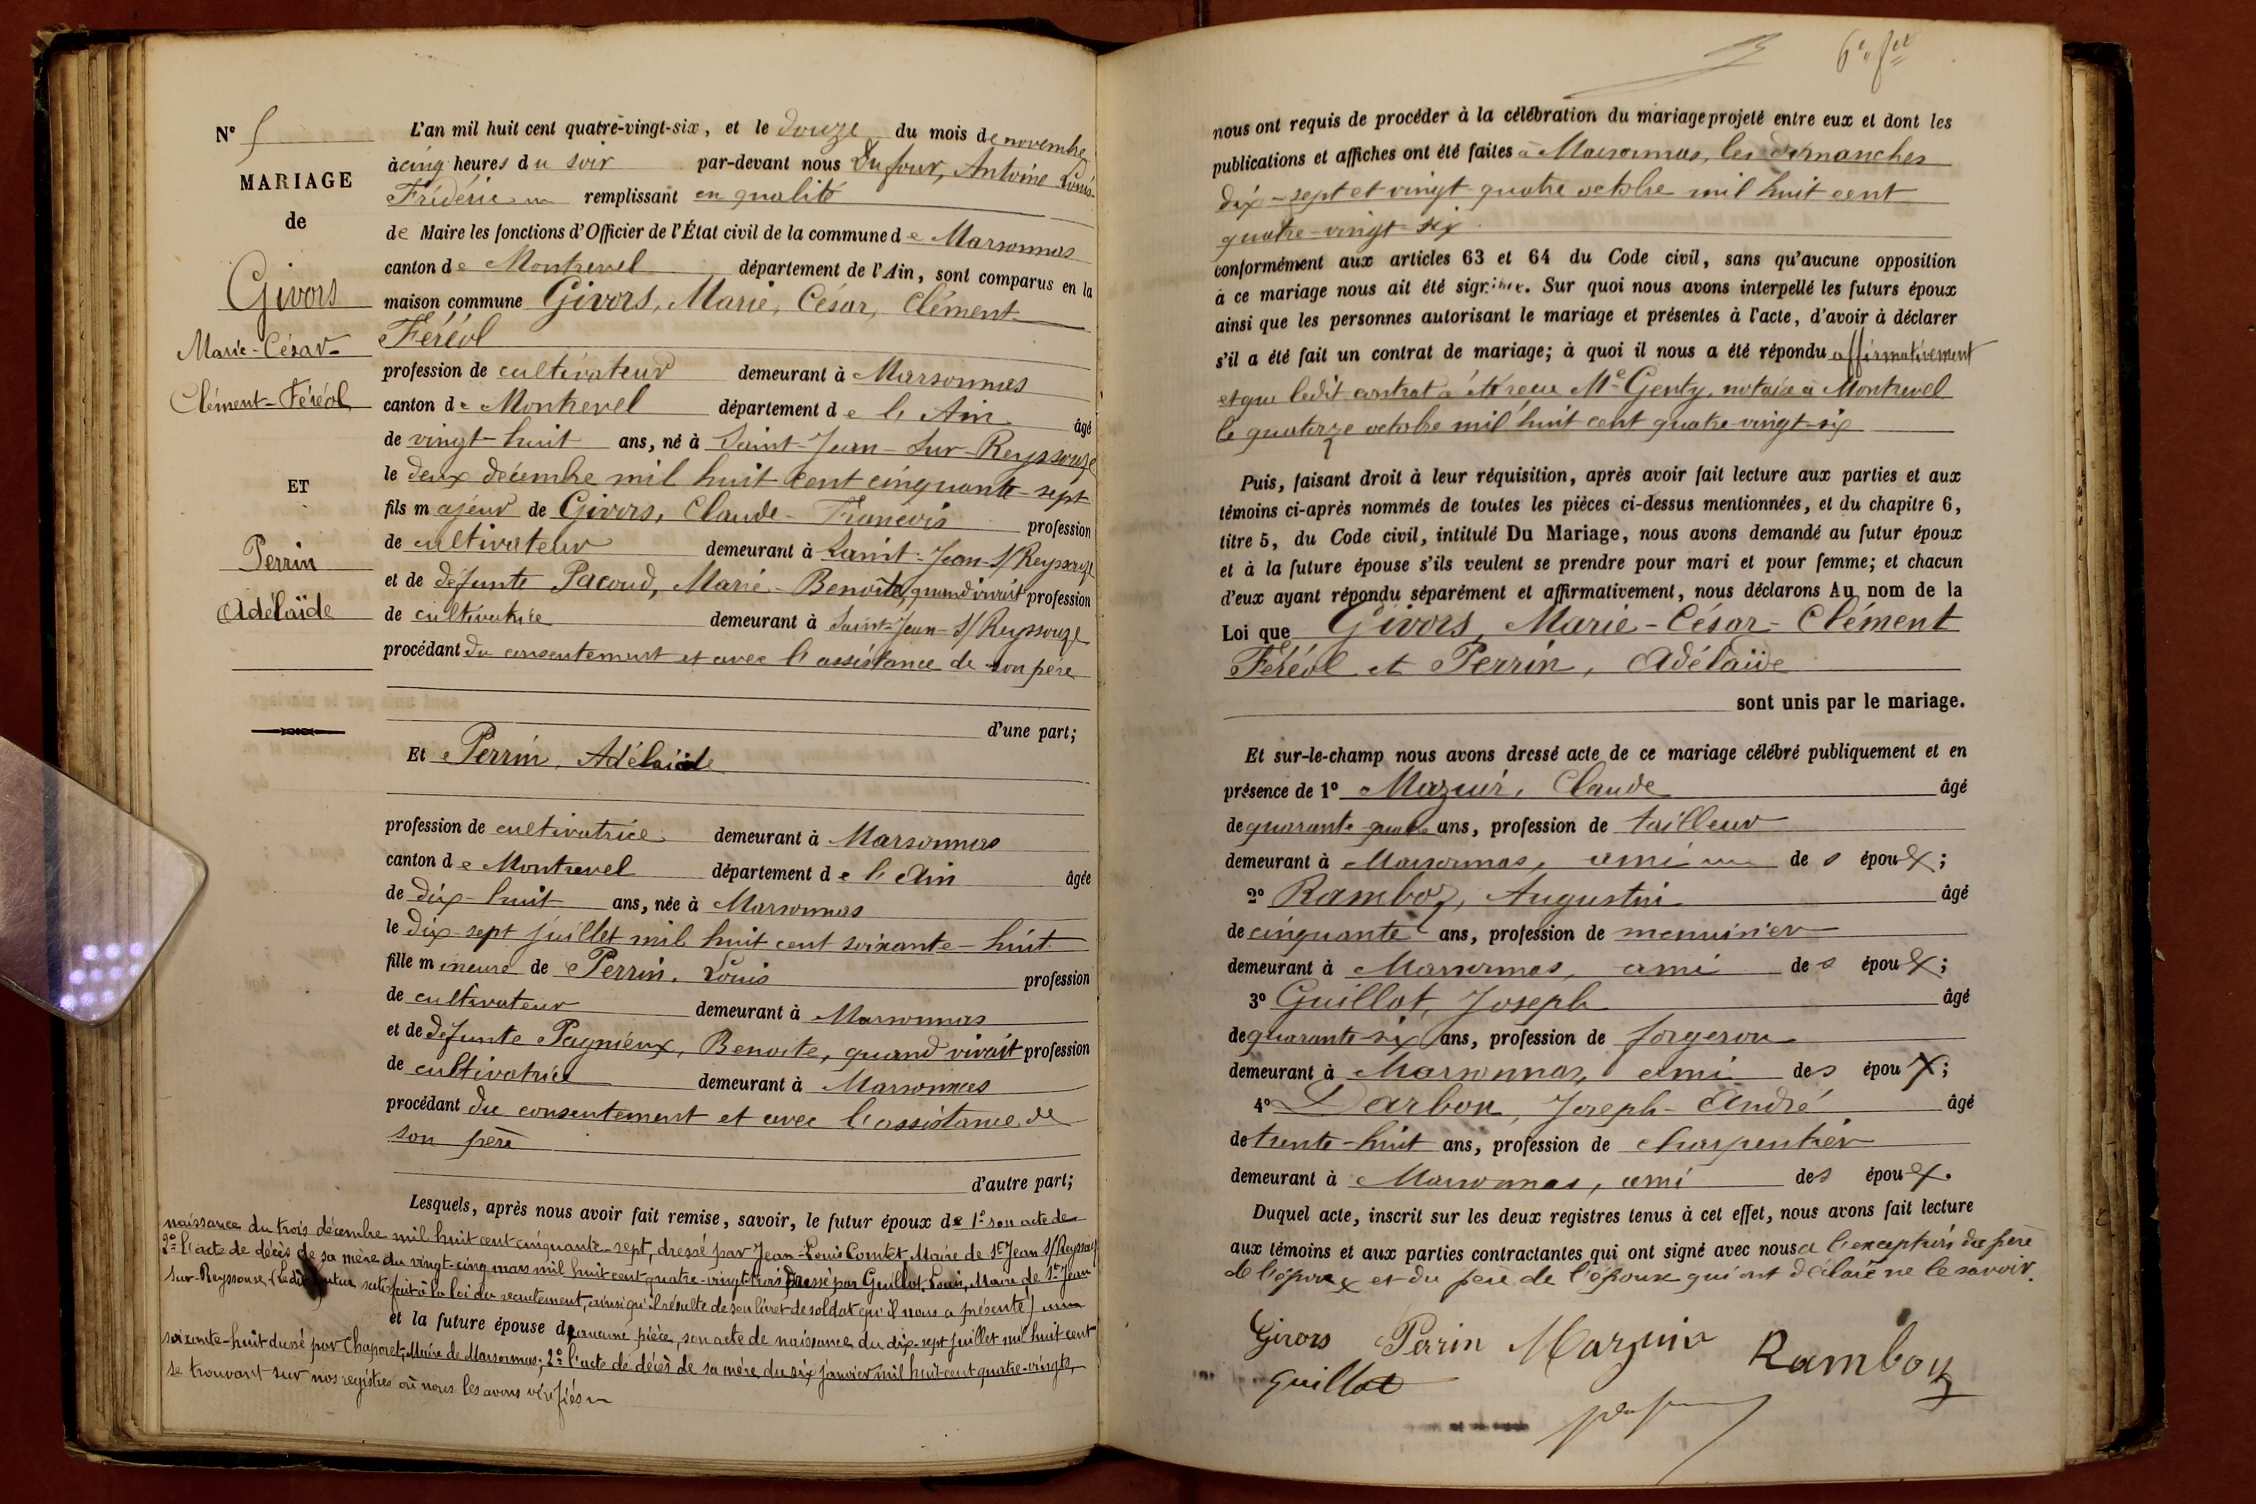 N° 5
MARIAGE
de
Givors
Marie-César-
Clément-Féréol
ET
Perrin
Adélaïde
L'an mil huit cent quatre-vingt-six, et le douze du mois de novembre
à cinq heures du soir par-devant nous Dufour, Antoine Louis-
Frédéric remplissant en qualité
de Maire les fonctions d'Officier de l'État civil de la commune de Marsonnas
canton de Montrevel département de l'Ain, sont comparus en la
maison commune Givors, Marie, César, Clément
Féréol
profession de cultivateur demeurant à Marsonnas
canton de Montrevel département de l'Ain âgé
de vingt-huit ans, né à Saint-Jean-Sur-Reyssouze
le deux décembre mil huit cent cinquante-sept
fils majeur de Givors, Claude-François profession
de cultivateur demeurant à Saint-Jean-S/Reyssouze
et de défunte Pacoud, Marie-Benoîte, quand vivait profession
de cultivatrice demeurant à Saint-Jean-S/Reyssouze
procédant du consentement et avec l'assistance de son père
d'une part;
Et Perrin, Adélaïde
profession de cultivatrice demeurant à Marsonnas
canton de Montrevel département de l'Ain âgée
de dix-huit ans, née à Marsonnas
le dix-sept juillet mil huit cent soixante-huit
fille mineure de Perrin, Louis profession
de cultivateur demeurant à Marsonnas
et de défunte Pagnieux, Benoite, quand vivait profession
de cultivatrice demeurant à Marsonnas
procédant du consentement et avec l'assistance de
son père
d'autre part;
Lesquels, après nous avoir fait remise, savoir, le futur époux de 1° son acte de
naissance du trois décembre mil huit cent cinquante-sept, dressé par Jean-Louis Comtet, Maire de St Jean S/Reyssouze
2° l'acte de décès de sa mère du vingt-cinq mars mil huit cent quatre-vingt-trois dressé par Guillot, Louis, Maire de St Jean
sur-Reyssouze, (Ledit futur satisfait à la loi du recrutement, ainsi qu'il résulte de son livret de soldat qu'il nous a présenté)
et la future épouse d'aucune pièce, son acte de naissance du dix-sept juillet mil huit cent
soixante-huit dressé par Chaponet, Maire de Marsonnas; 2° l'acte de décès de sa mère du six janvier mil huit cent quatre-vingts,
se trouvant sur nos registres où nous les avons vérifiés
6e fet
nous ont requis de procéder à la célébration du mariage projeté entre eux et dont les
publications et affiches ont été faites à Marsonnas, les dimanches
dix-sept et vingt-quatre octobre mil huit cent
quatre-vingt-six
conformément aux articles 63 et 64 du Code civil, sans qu'aucune opposition
à ce mariage nous ait été signifiée. Sur quoi nous avons interpellé les futurs époux
ainsi que les personnes autorisant le mariage et présentes à l'acte, d'avoir à déclarer
s'il a été fait un contrat de mariage; à quoi il nous a été répondu affirmativement
et que ledit contrat a été reçu Me Genty, notaire à Montrevel
le quatorze octobre mil huit cent quatre-vingt-six
Puis, faisant droit à leur réquisition, après avoir fait lecture aux parties et aux
témoins ci-après nommés de toutes les pièces ci-dessus mentionnées, et du chapitre 6,
titre 5, du Code civil, intitulé Du Mariage, nous avons demandé au futur époux
et à la future épouse s'ils veulent se prendre pour mari et pour femme; et chacun
d'eux ayant répondu séparément et affirmativement, nous déclarons Au nom de la
Loi que Givors, Marie-César-Clément
Féréol et Perrin, Adélaïde
sont unis par le mariage.
Et sur-le-champ nous avons dressé acte de ce mariage célébré publiquement et en
présence de 1° Mazuir, Claude âgé
de quarante-quatre ans, profession de tailleur
demeurant à Marsonnas, ami des époux;
2° Ramboz, Augustin âgé
de cinquante ans, profession de menuisier
demeurant à Marsonnas, ami des époux;
3° Guillot, Joseph âgé
de quarante-six ans, profession de forgeron
demeurant à Marsonnas, ami des époux;
4° Darbon, Joseph-André âgé
de trente-huit ans, profession de charpentier
demeurant à Marsonnas, ami des époux.
Duquel acte, inscrit sur les deux registres tenus à cet effet, nous avons fait lecture
aux témoins et aux parties contractantes qui ont signé avec nous à l'exception du père
de l'époux et du père de l'épouse qui ont déclaré ne le savoir.
Givors Perin Mazuir Ramboz
Guillot